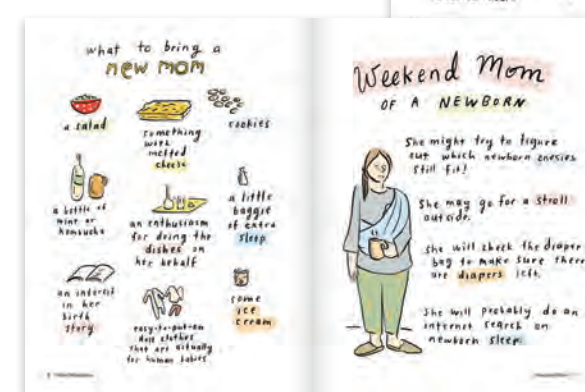 what to bring a
new mom
a salad
something
with
melted
cheese
cookies
a bottle of
wine or
kombucha
an enthusiasm
for doing the
dishes on
her behalf
a little
baggie
of extra
sleep
an interest
in her
birth
story
easy-to-put-on
doll clothes
that are actually
for human babies
some
ice
cream
Weekend Mom
OF A NEWBORN
She might try to figure
out which newborn onesies
still fit!
She may go for a stroll
outside.
She will check the diaper
bag to make sure there
are diapers left.
She will probably do an
internet search on
newborn sleep.